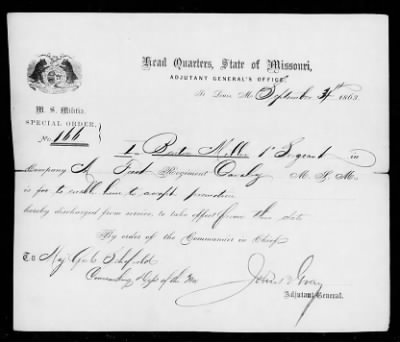 Head Quarters, State of Missouri,
ADJUTANT GENERAL'S OFFICE,
St Louis Mo September 1863
M. S. Militia.
SPECIAL ORDER,
No. 166
1 Miller 1st Sergeant in
Company A First Regiment Cavalry M. S. M.
is for to enable him to accept promotion
hereby discharged from service, to take effect from this date
By order of the Commander in Chief
To Maj Genl Schofield
Commanding Dept of the Mo
John B Gray
Adjutant General.